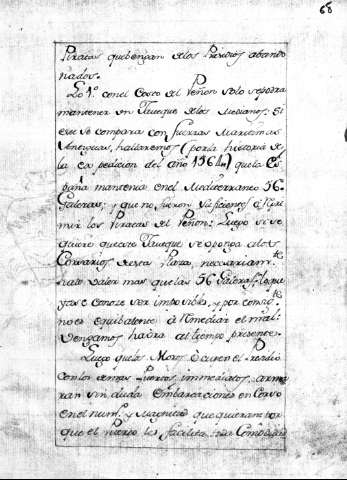 68
Piratas que vengan de los Presidios abando
nados.
Lo 1º con el Costo del Peñon solo se podra
mantener un Jaueque de los Medianos: Si
este se compara con fuerzas Maritimas
Antiguas, hallaremos (por la historia de
la expedicion del año 1564,) que la Es
paña mantenia en el Mediterraneo 56
Galeras; y que no fueron suficientes à Repri
mir los Piratas del Peñon; Luego si se
quiere que este Jaueque se oponga a los
Corsarios de esta Plaza, necesariam.te
valer mas que las 56 Galeras, lo que
ya se conoce ser imposible, y por consig.te
no es equibalente à Remediar el mal:
Vengamos haora al tiempo presente.
Luego que los Moros el
con los demas Puertos immediatos, arma
ran sin duda Embarcaciones en Corso
en el num.º y Magnitud que quieran por
que el Puerto les facilita